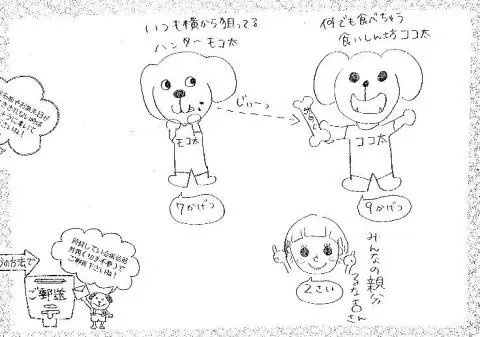 いつも横から狙ってる
ハンターモコ太
何でも食べちゃう
食いしん坊ココ太
じぃーっ
モコ太
ココ太
7かげつ
9かげつ
2さい
みんなの親分
るな吉さん
同封している返信用
封筒(切手不要)で
ご郵送下さいね!
の方法で
ご郵送